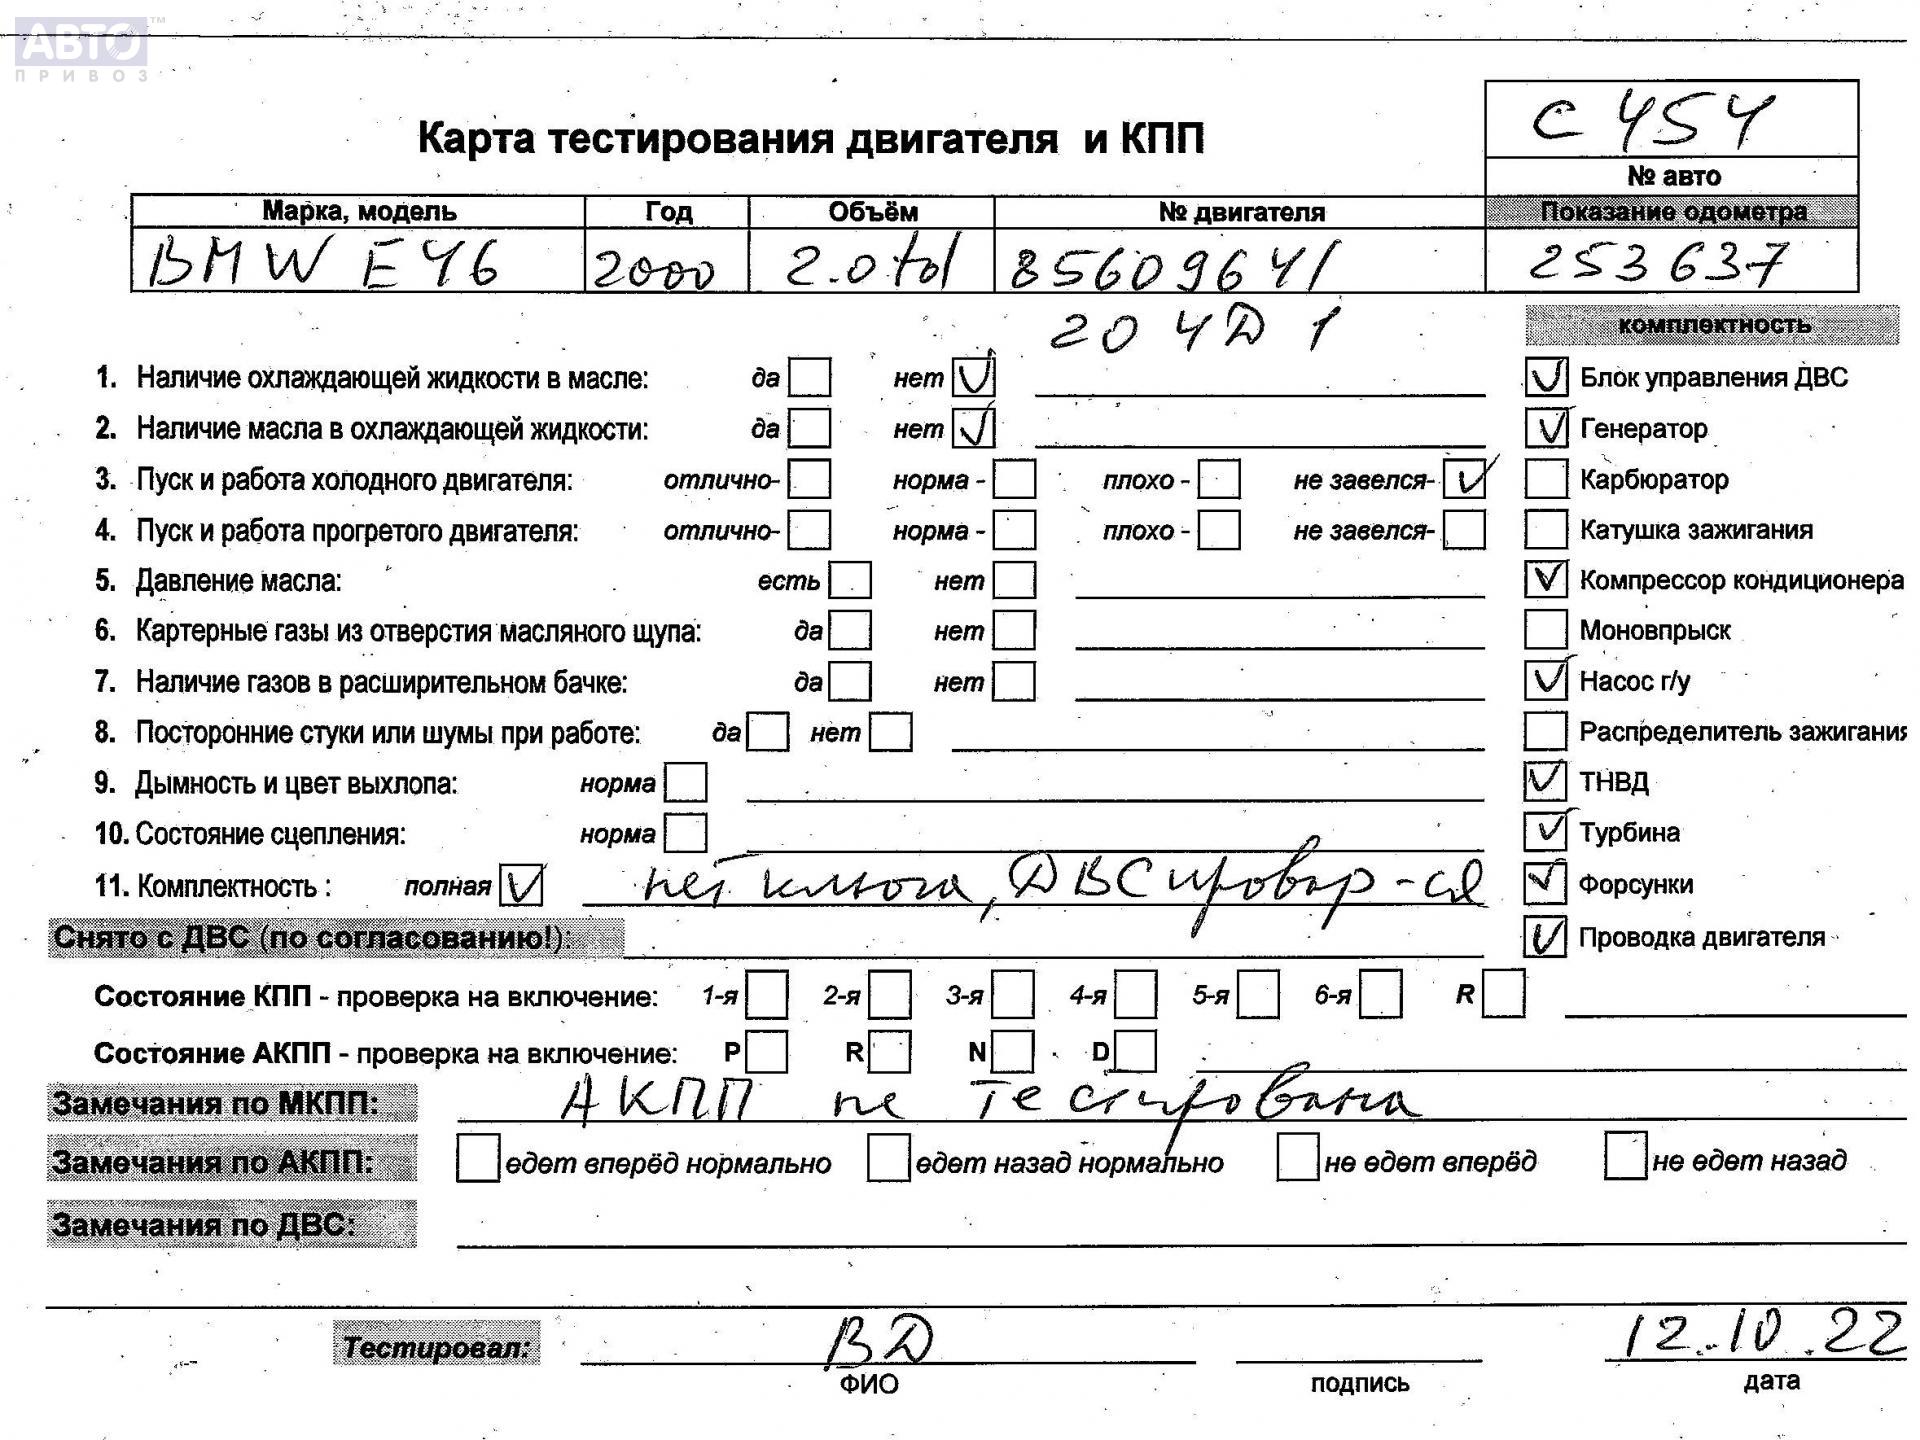 АВТО™
ПРИВОЗ
С 454
Карта тестирования двигателя и КПП
№ авто
Марка, модель Год Объём № двигателя Показание одометра
BMW E46 2000 2.0 td 85609641 253637
204D1
комплектность
1. Наличие охлаждающей жидкости в масле: да нет Блок управления ДВС
2. Наличие масла в охлаждающей жидкости: да нет Генератор
3. Пуск и работа холодного двигателя: отлично- норма - плохо - не завелся- Карбюратор
4. Пуск и работа прогретого двигателя: отлично- норма - плохо - не завелся- Катушка зажигания
5. Давление масла: есть нет Компрессор кондиционера
6. Картерные газы из отверстия масляного щупа: да нет Моновпрыск
7. Наличие газов в расширительном бачке: да нет Насос г/у
8. Посторонние стуки или шумы при работе: да нет Распределитель зажигания
9. Дымность и цвет выхлопа: норма ТНВД
10. Состояние сцепления: норма Турбина
11. Комплектность : полная нет ключа, ДВС провор-ся Форсунки
Снято с ДВС (по согласованию!): Проводка двигателя
Состояние КПП - проверка на включение: 1-я 2-я 3-я 4-я 5-я 6-я R
Состояние АКПП - проверка на включение: P R N D
Замечания по МКПП: АКПП не тестирована
Замечания по АКПП: едет вперёд нормально едет назад нормально не едет вперёд не едет назад
Замечания по ДВС:
Тестировал: ВД 12.10.22
ФИО подпись дата